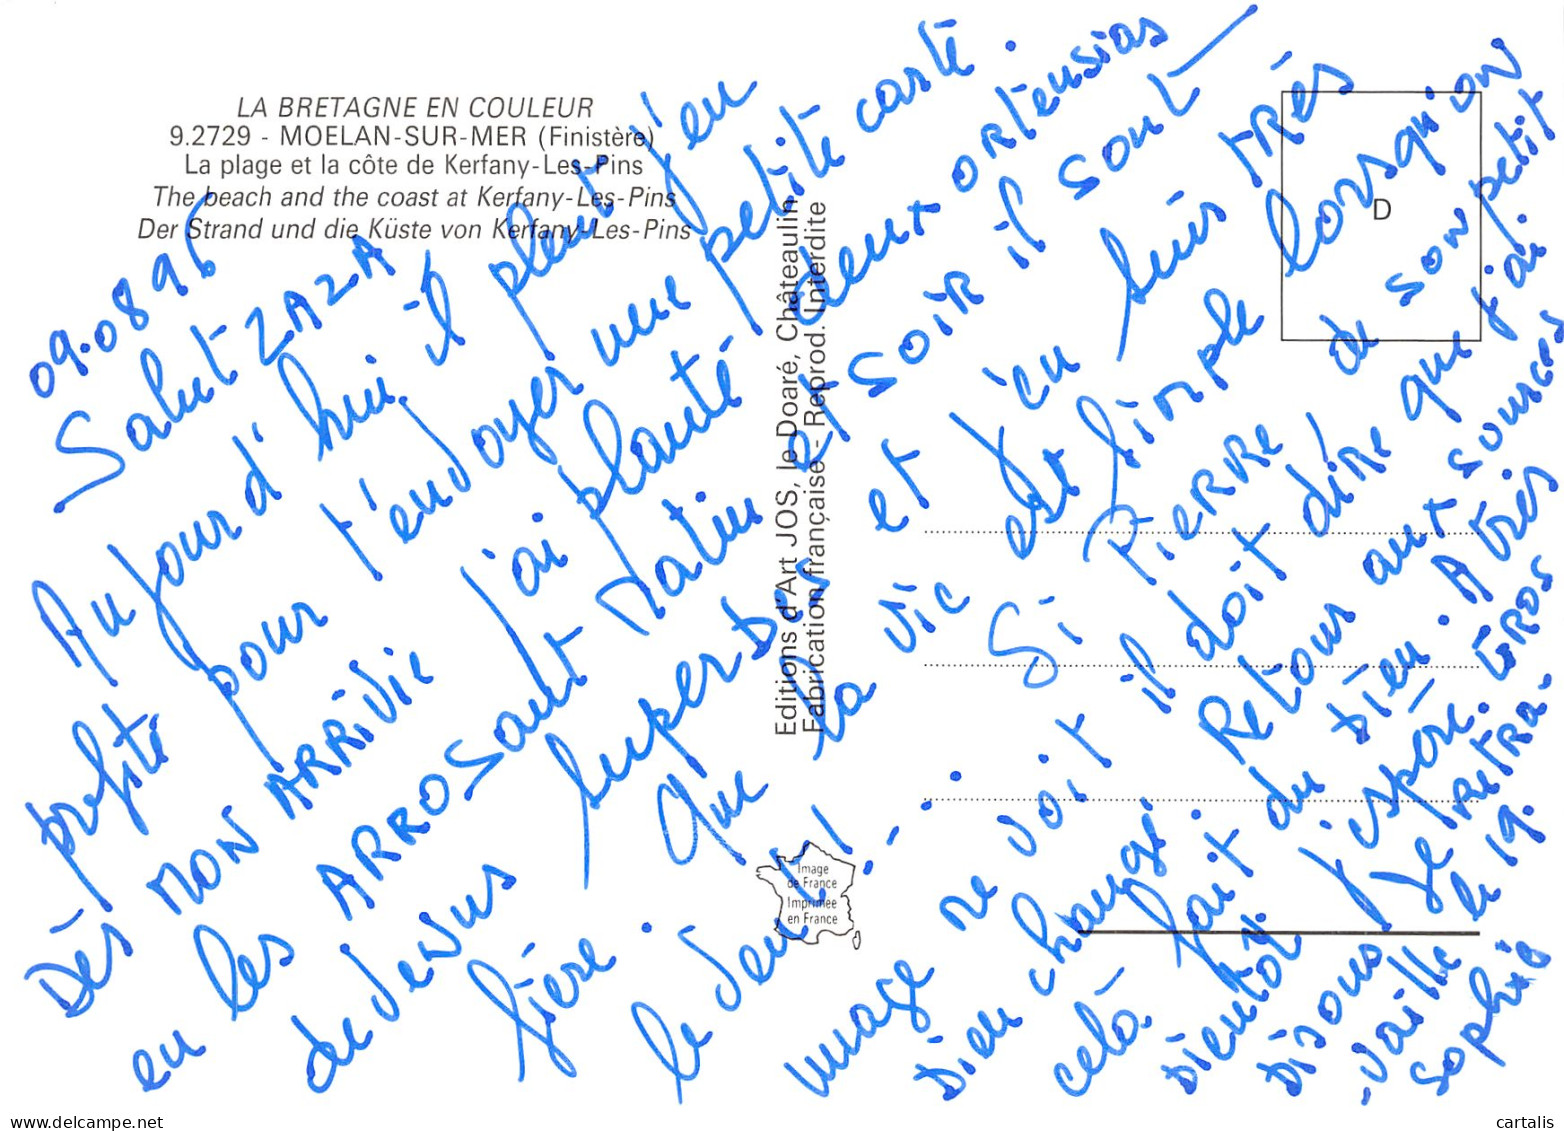 LA BRETAGNE EN COULEUR
9.2729 - MOELAN-SUR-MER (Finistère)
La plage et la côte de Kerfany-Les-Pins
The beach and the coast at Kerfany-Les-Pins
Der Strand und die Küste von Kerfany-Les-Pins
Editions d'Art JOS, le Doaré, Châteaulin
Fabrication française - Reprod. Interdite
D
Image
de France
Imprimée
en France
09.08 96
Salut ZAZA
Aujourd'hui il pleut j'en
profite pour t'envoyer une petite carte.
Dès MON ARRIVIE J'ai planté deux ortensias
en les ARROSant Matin et SOIR il sont
devenus superbes et j'en suis très
fière. Que la vie est simple lorsqu'on
le veut! Si PIERRE du son petit
nuage me voit il doit dire que j'ai
bien changé. Retour aux sources
celà fait du bien. A très
bientôt j'espère. GROS
bisous Je RETRA-
-vaille le 19.
Sophie
delcampe.net
cartalis